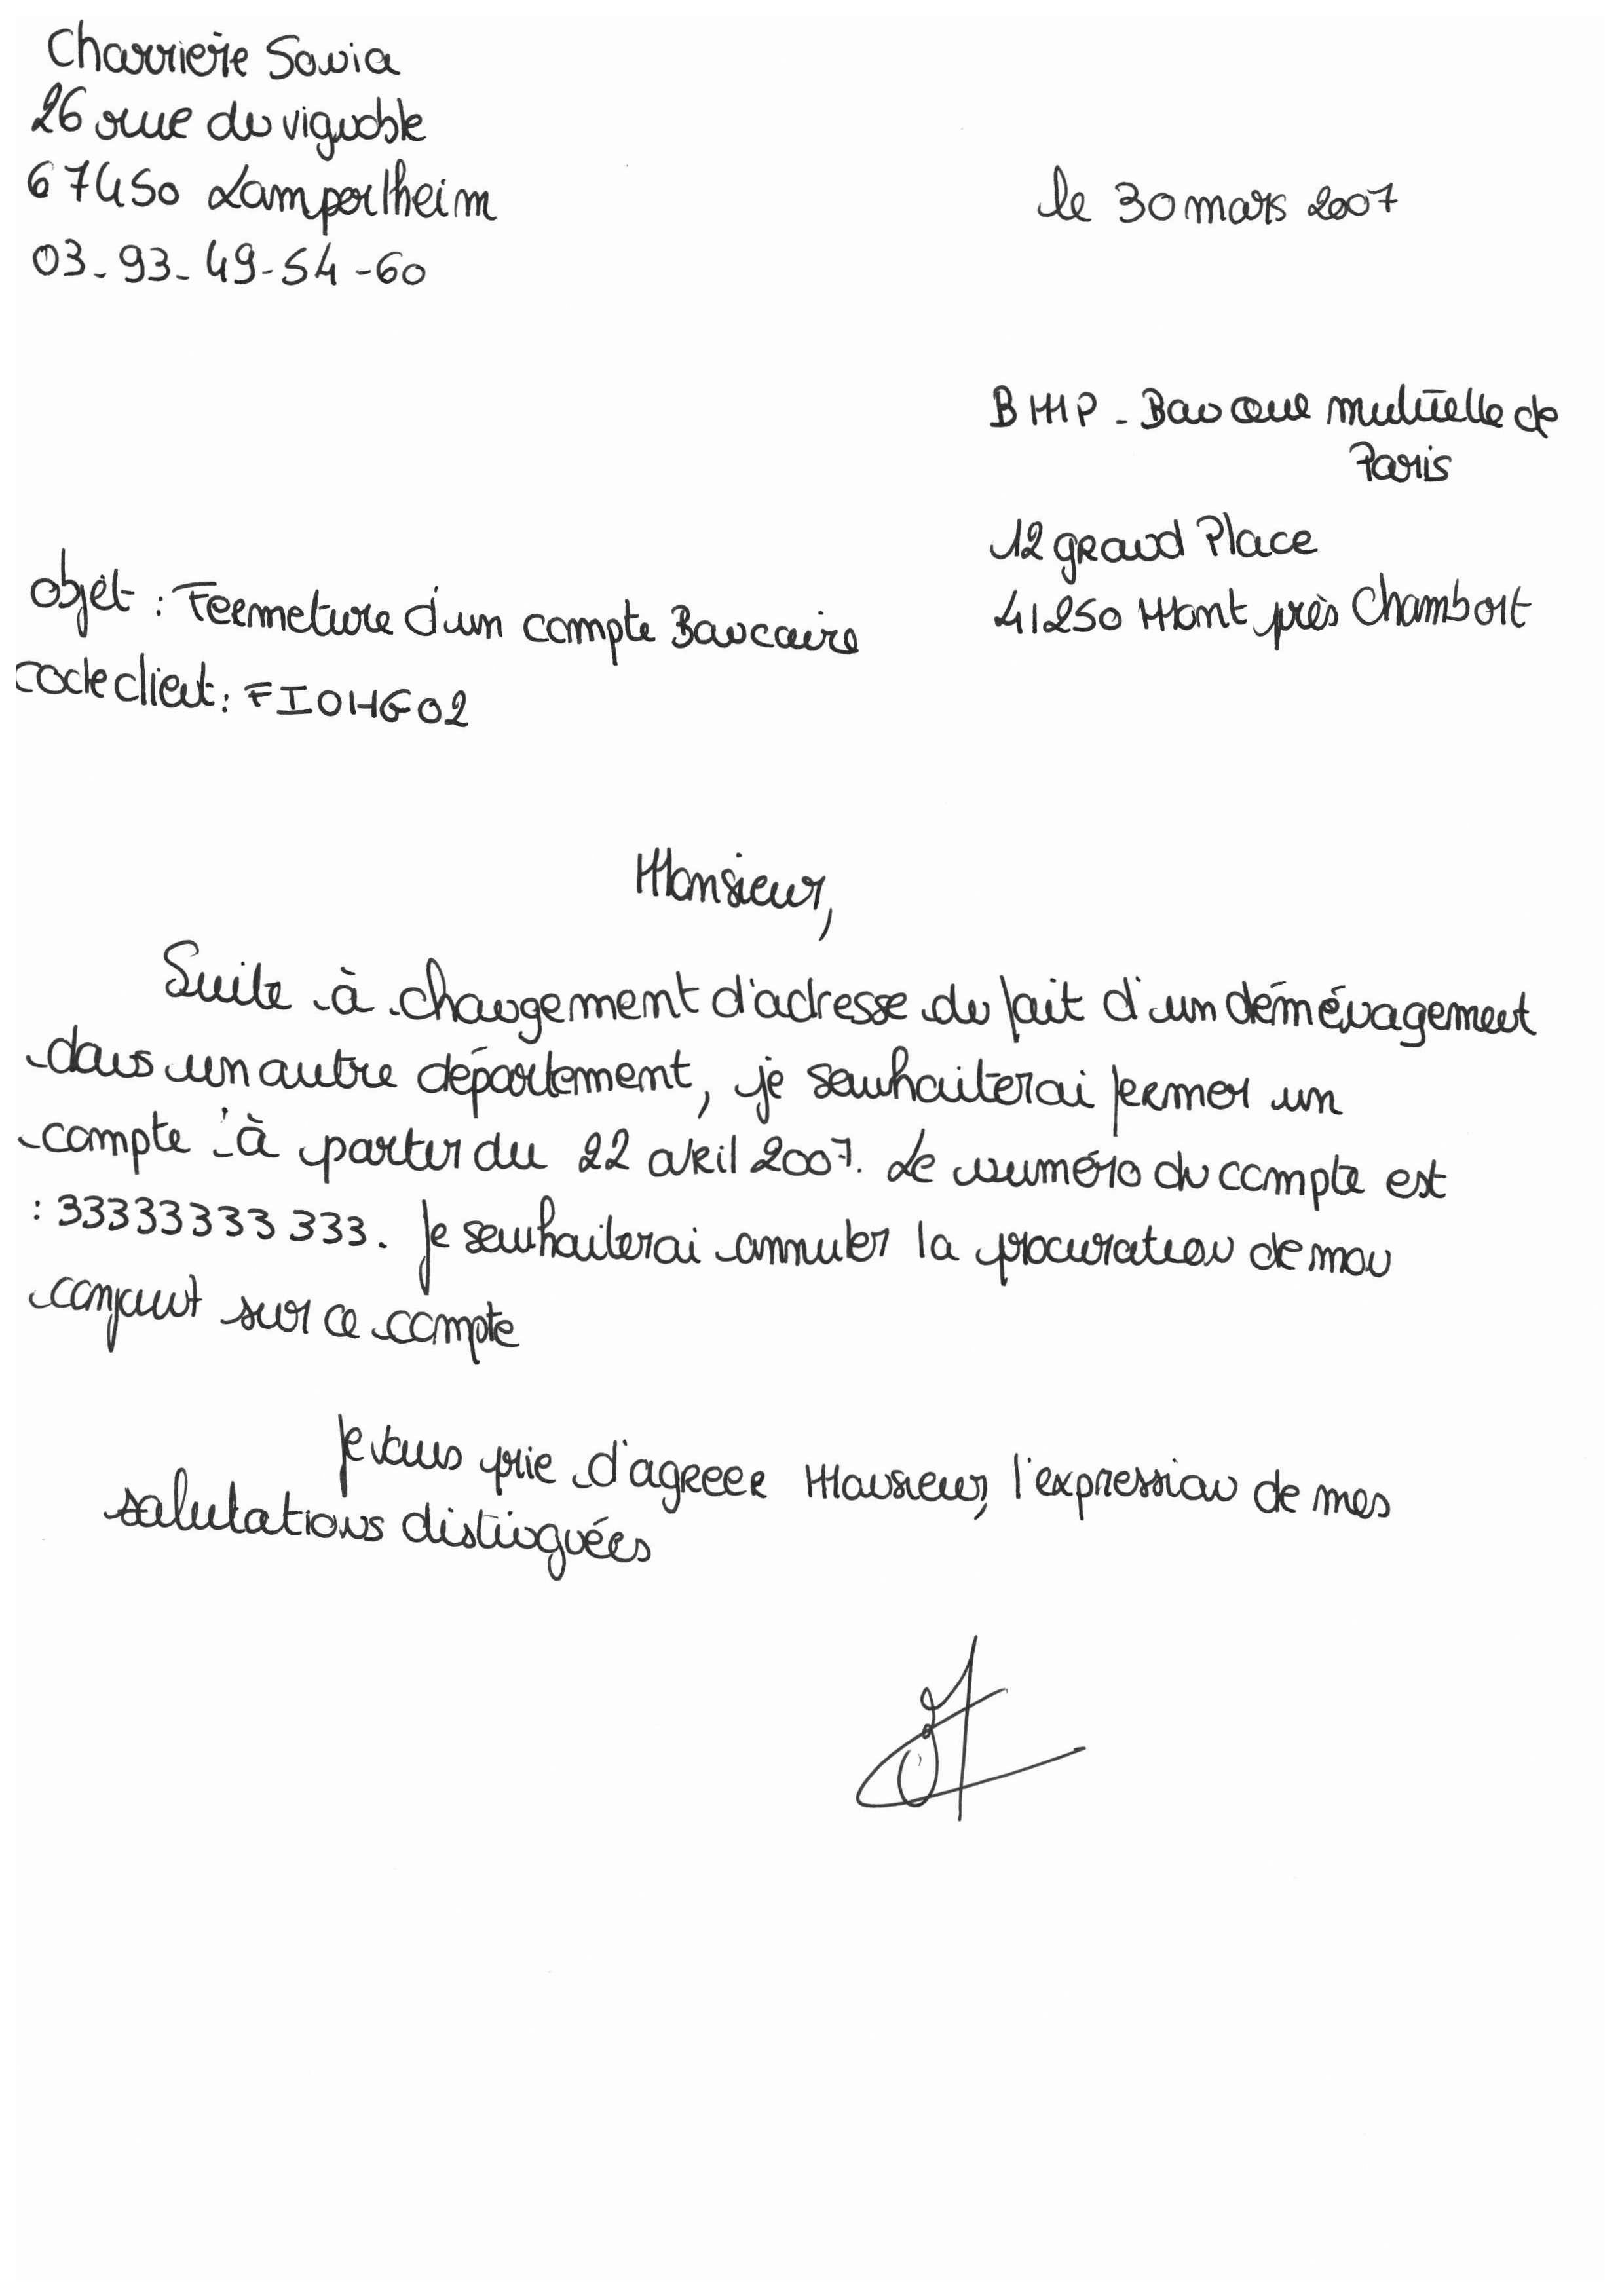 Charrière Sonia
26 rue du vignoble
67450 Lampertheim
03-93-49-54-60
le 30 mars 2007
BMP - Banque mutuelle de
Paris
12 grand Place
41250 Mont près Chambort
objet : Fermeture d'un compte Bancaire
code client : FIOHG02
Monsieur,
Suite à changement d'adresse du fait d'un déménagement
dans un autre département, je souhaiterai fermer un
compte à partir du 22 avril 2007. Le numéro du compte est
: 33333333 333. Je souhaiterai annuler la procuration de mon
conjount sur ce compte
Je vous prie d'agréer Monsieur, l'expression de mes
salutations distinguées